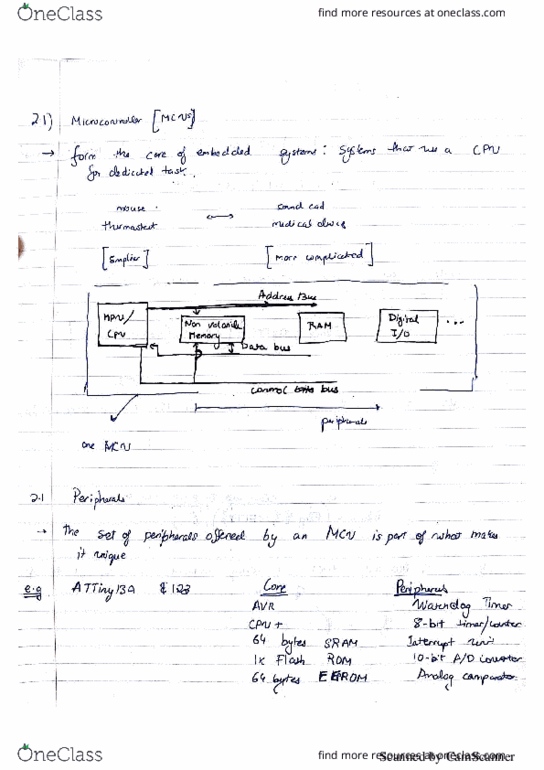 OneClass
find more resources at oneclass.com
2.1) Microcontroller [MCUs]
→ form the core of embedded systems: systems that use a CPU
for dedicated task.
mouse ↔ sound card
thermostat medical device
[Simplier] [more complicated]
Address Bus
MPU/
CPU
Non volatile
Memory
RAM
Digital
I/O
...
Data bus
control bus
peripherals
one MCU
2.1 Peripherals
→ the set of peripherals offered by an MCU is part of what makes
it unique
e.g ATTiny13A Core Peripherals
AVR Watchdog Timer
CPU + 8-bit timer/counter
64 bytes SRAM Interrupt unit
1k Flash ROM 10-bit A/D converter
64 bytes EEROM Analog comparator
OneClass
find more resources at oneclass.com
Scanned by CamScanner